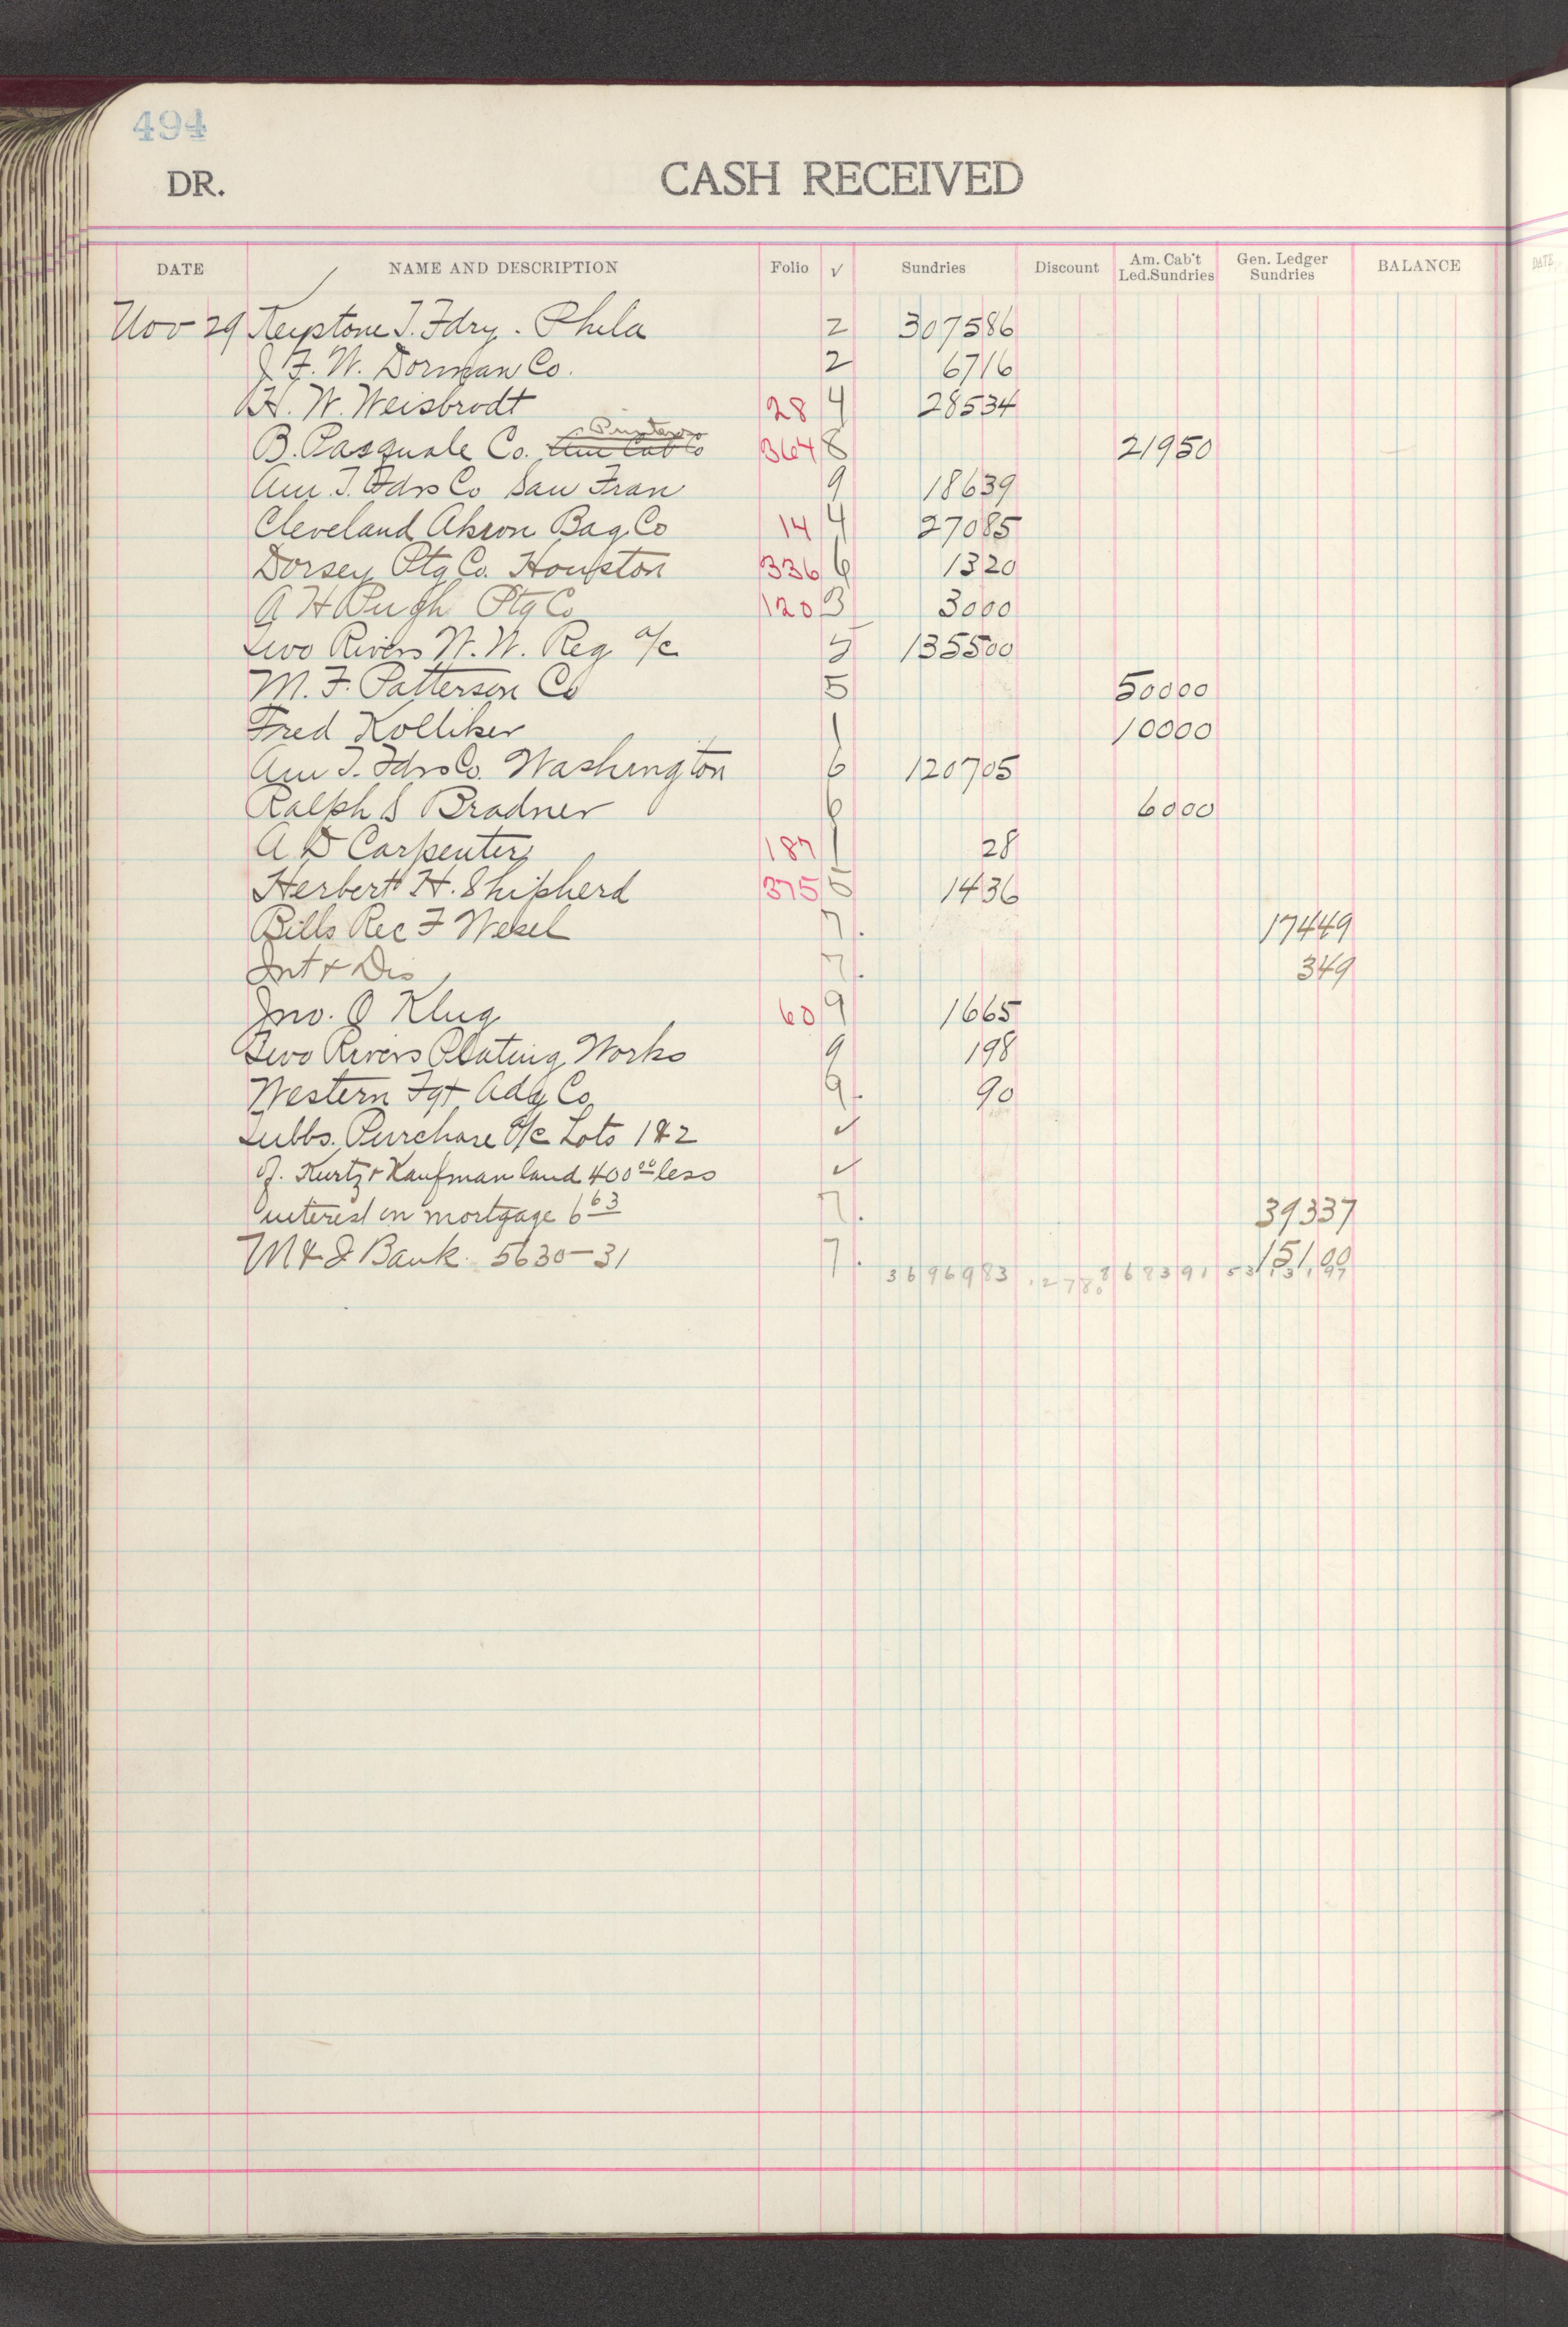 494
DR. CASH RECEIVED
DATE NAME AND DESCRIPTION Folio √ Sundries Discount Am. Cab't Led.Sundries Gen. Ledger Sundries BALANCE
Nov 29 Keystone T. Fdry. Phila 2 307586
J. F. W. Dorman Co. 2 6716
H. W. Weisbrodt 28 4 28534
B. Pasquale Co. Am Cab Co 364 8 21950
Am. T. Fdrs Co San Fran 9 18639
Cleveland Akron Bag Co 14 4 27085
Dorsey Ptg Co. Houston 336 6 1320
A H Pugh Ptg Co 120 3 3000
Two Rivers W. W. Reg a/c 5 135500
M. F. Patterson Co 5 50000
Fred Kolliker 1 10000
Am T. Fdrs Co. Washington 6 120705
Ralph S Bradner 6 6000
A D Carpenter 187 1 28
Herbert H. Shipherd 375 5 1436
Bills Rec F Wesel 7. 17449
Int & Dis 7. 349
Jno. O Klug 60 9 1665
Two Rivers Plating Works 9 198
Western Fgt Adg Co 9. 90
Tubbs. Purchase a/c Lots 1 & 2 ✓
of. Kurtz & Kaufman land 400 00 less ✓
interest on mortgage 6 63 7. 39337
M & I Bank. 5630-31 7. 15100
3696983